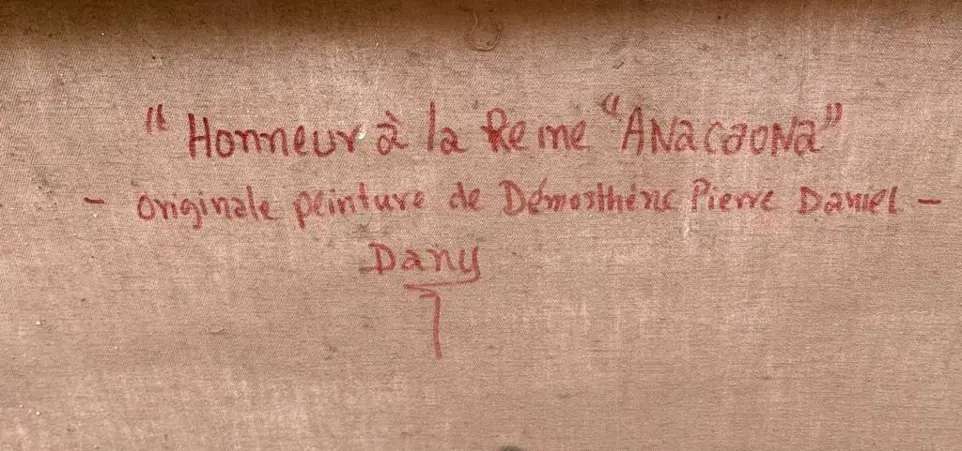 "Honneur à la Reine "ANACAONA"
- Originale peinture de Démosthène Pierre Daniel -
Dany